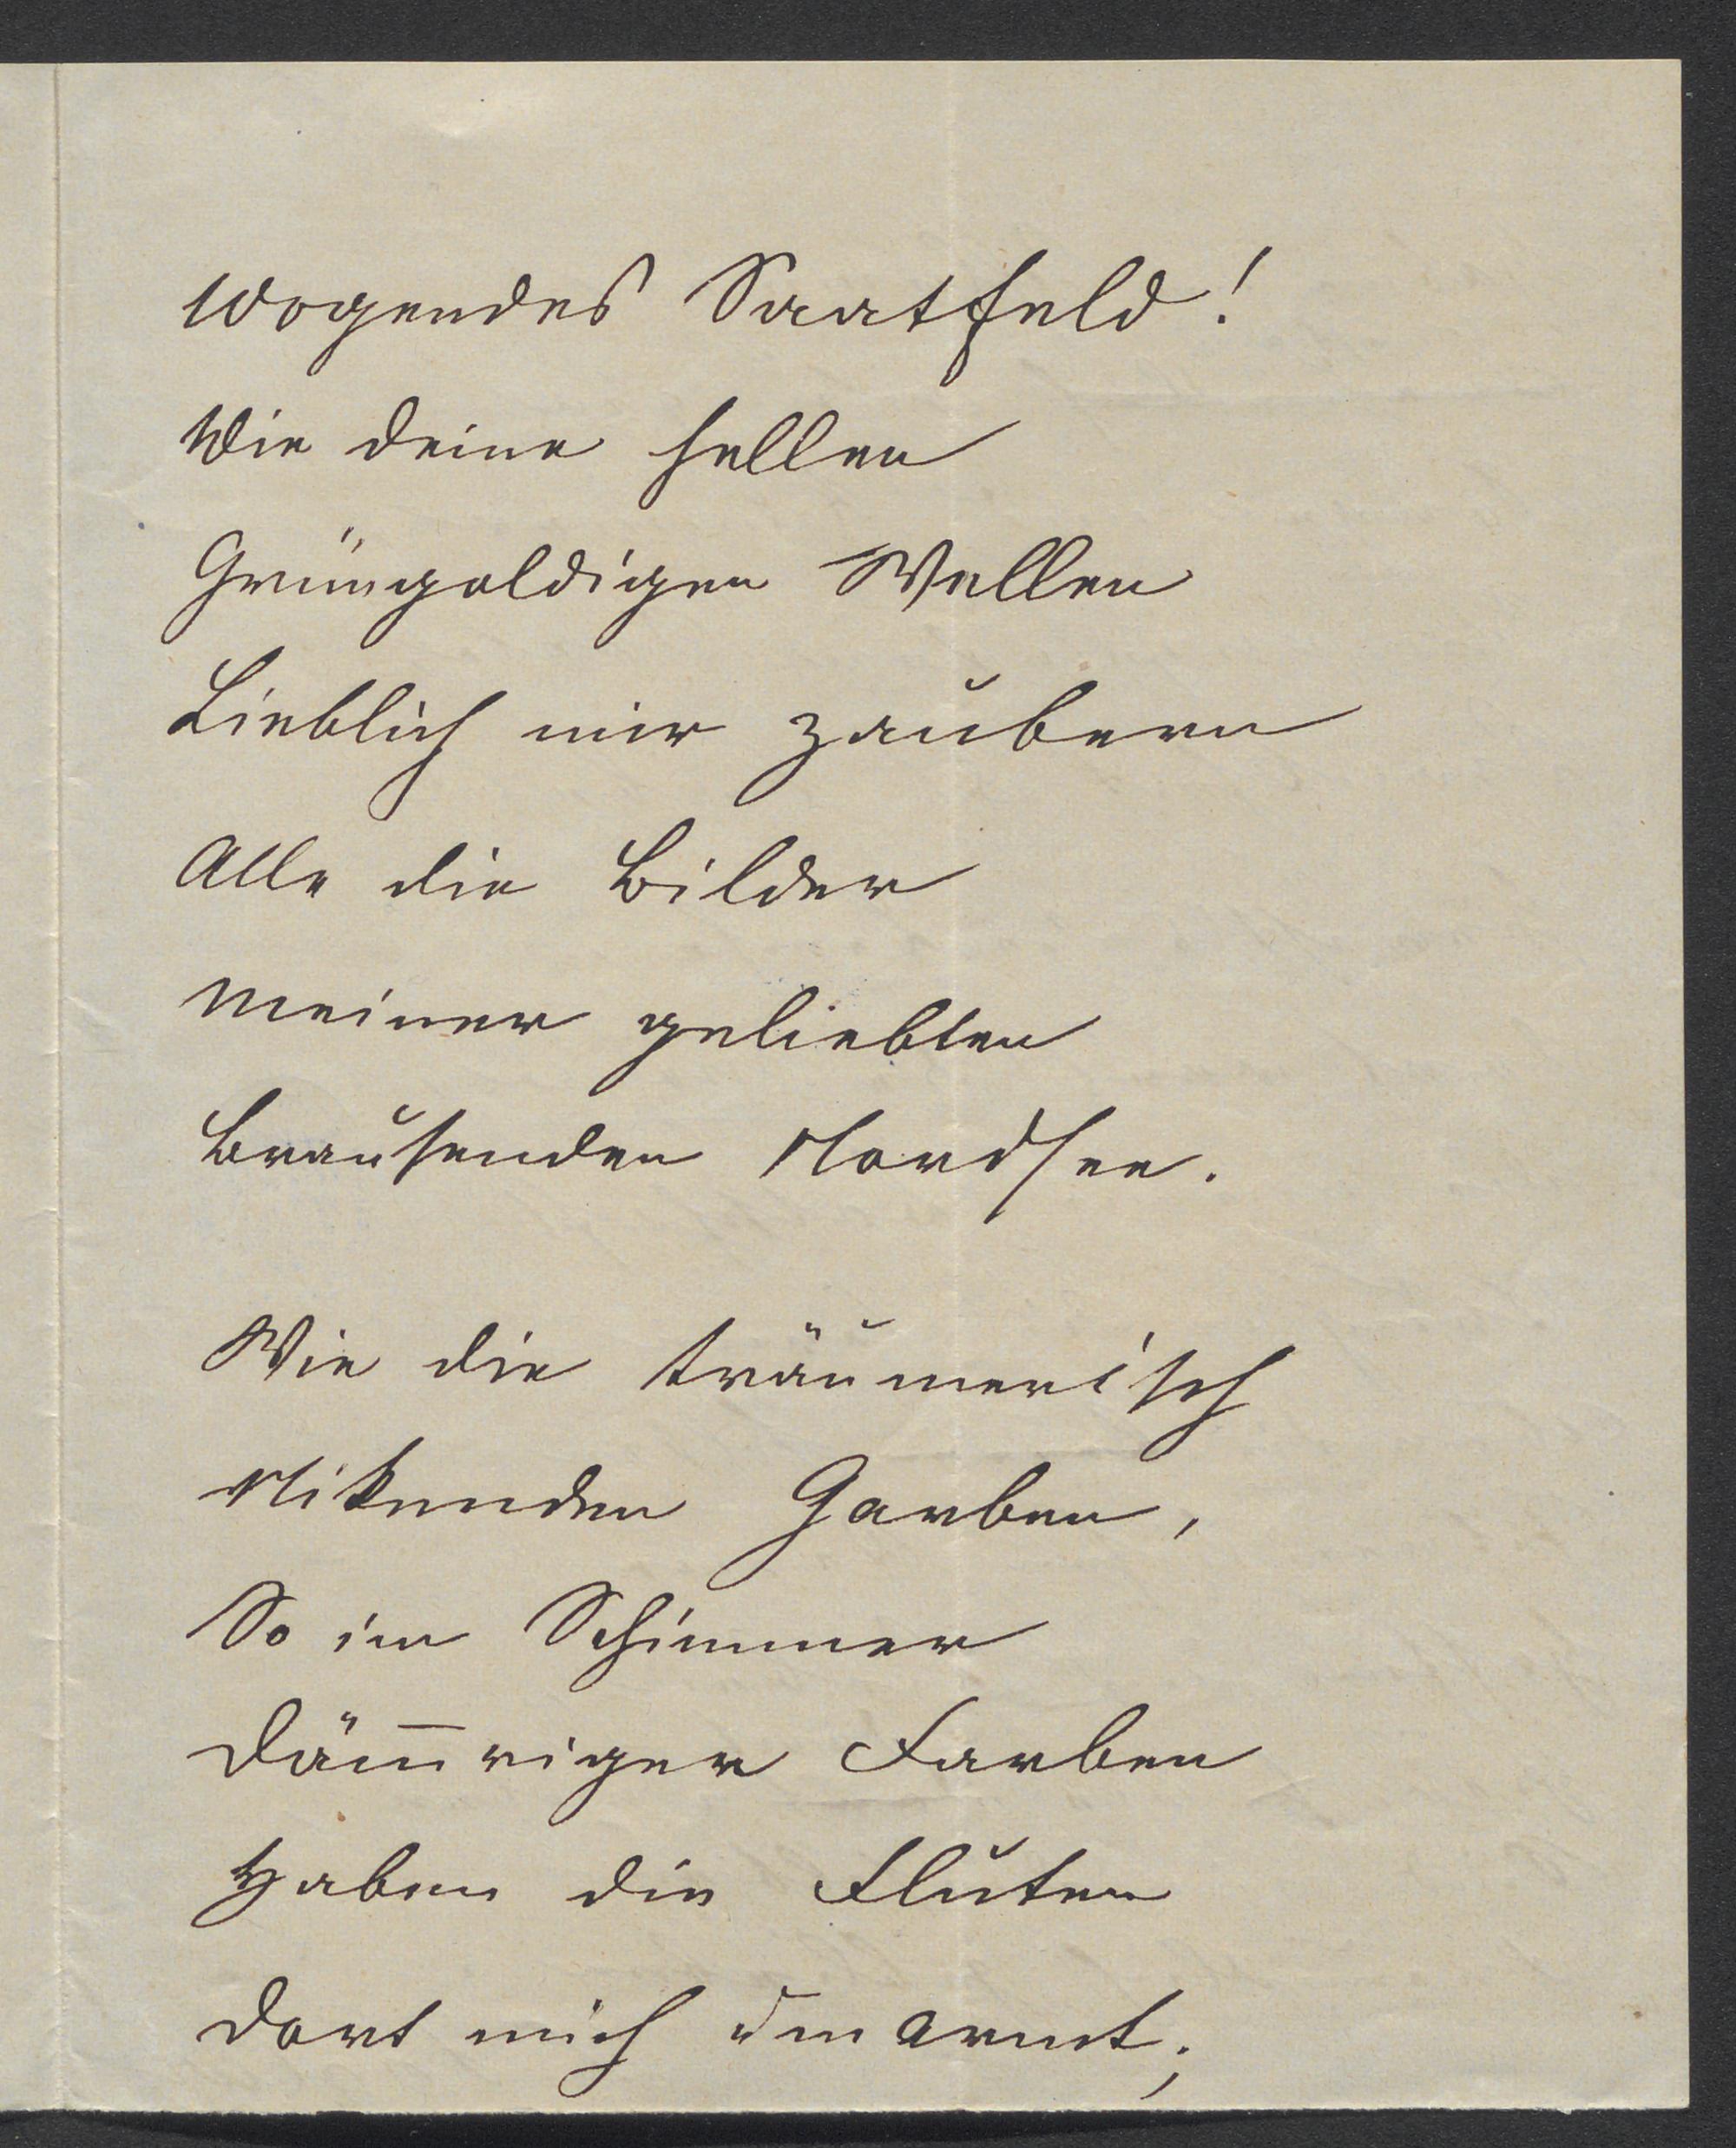 Wogendes Saatfeld!
Wie deine hellen
Grüngoldigen Wellen
Lieblich mir zaubern
Alle die Bilder
Meiner geliebten
Brausenden Nordsee.
Wie die träumerisch
Nikenden Garben,
So im Schimmer
Däm̅riger Farben
Haben die Fluten
Dort mich umarmt;